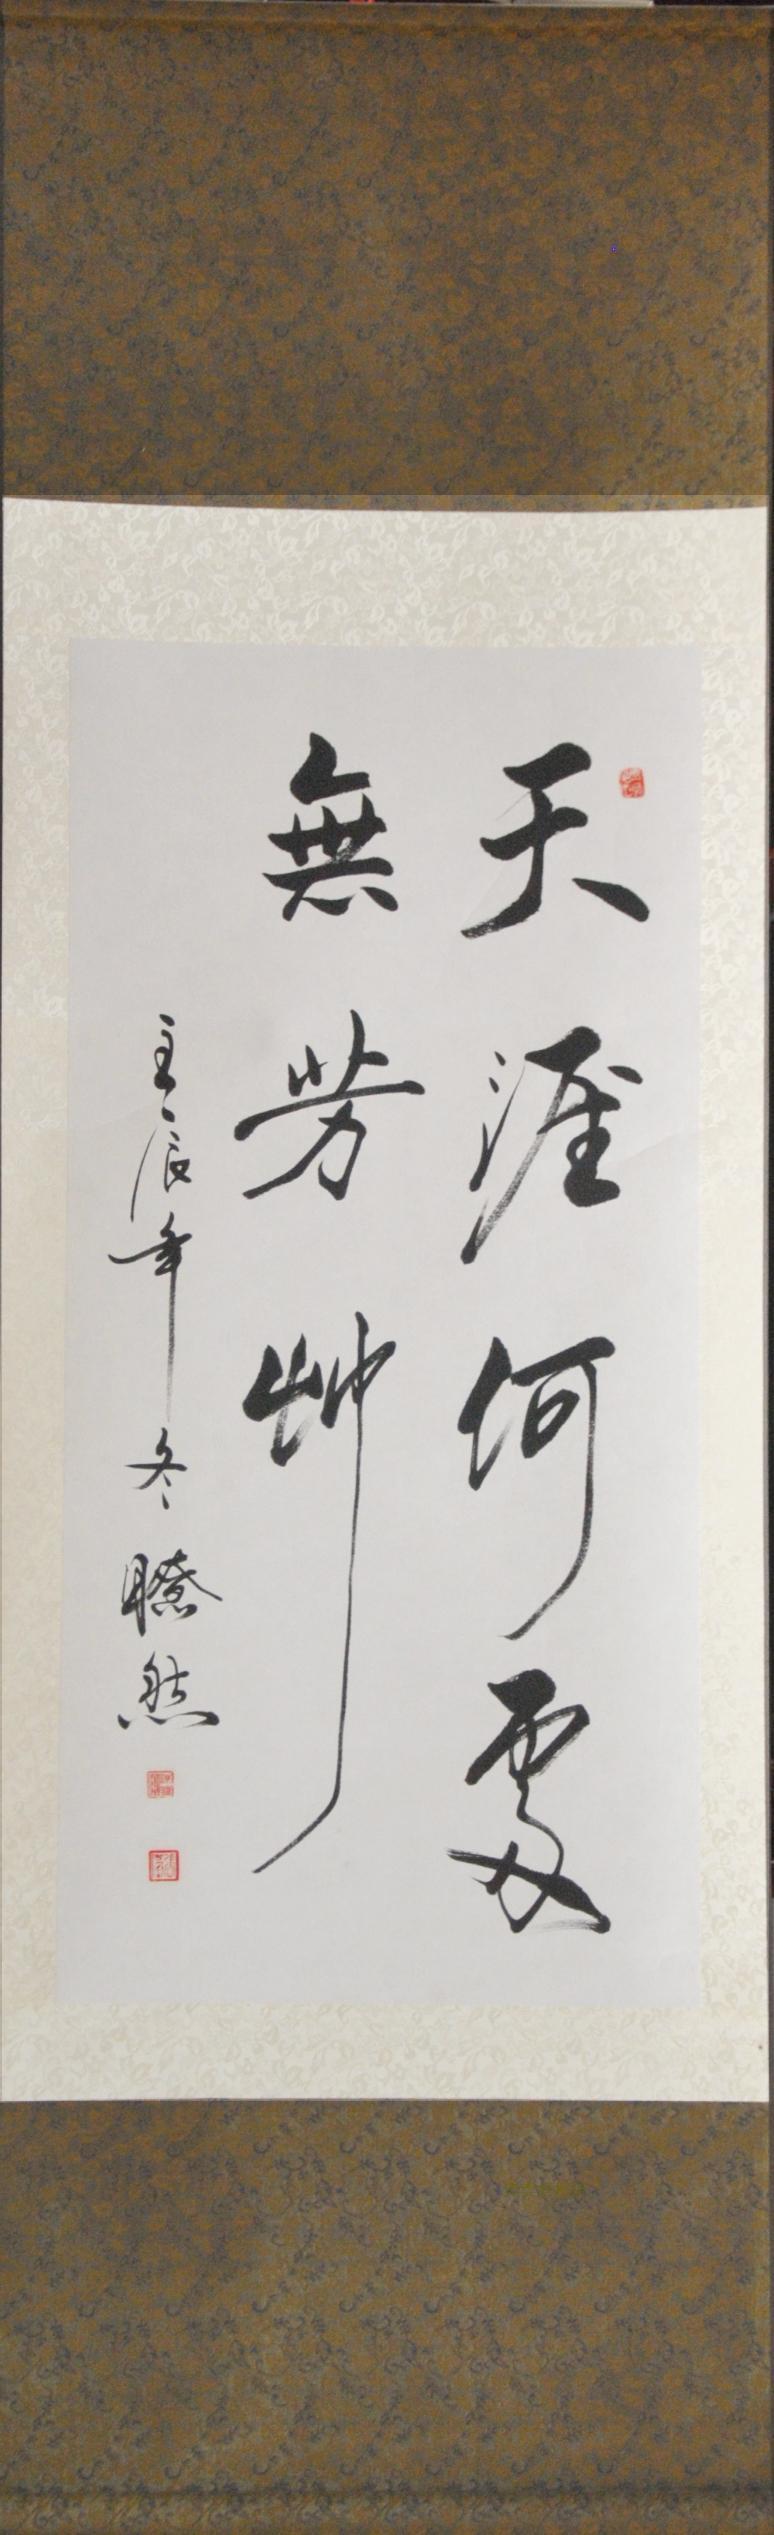 天涯何處
無芳艸
壬辰年冬瞭然